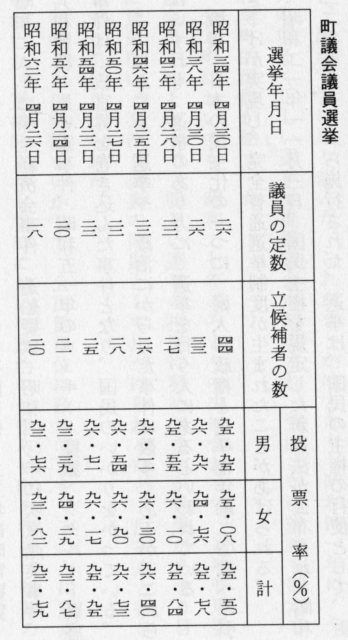 町議会議員選挙
選挙年月日 議員の定数 立候補者の数 投票率(%) 男 女 計
昭和三四年 四月三〇日 二六 四四 九五・九五 九五・〇八 九五・五〇
昭和三八年 四月三〇日 二六 三三 九六・九六 九四・七六 九五・七八
昭和四二年 四月二八日 二二 二七 九五・五五 九六・一〇 九五・八四
昭和四六年 四月二五日 二二 二六 九六・一一 九六・三〇 九六・四〇
昭和五〇年 四月二七日 二二 二八 九六・五四 九六・九〇 九六・七三
昭和五四年 四月二二日 二二 二五 九六・七一 九六・一七 九五・九五
昭和五八年 四月二四日 二〇 二一 九三・三九 九四・二九 九三・八七
昭和六二年 四月二六日 一八 二〇 九三・七六 九三・八二 九三・七九